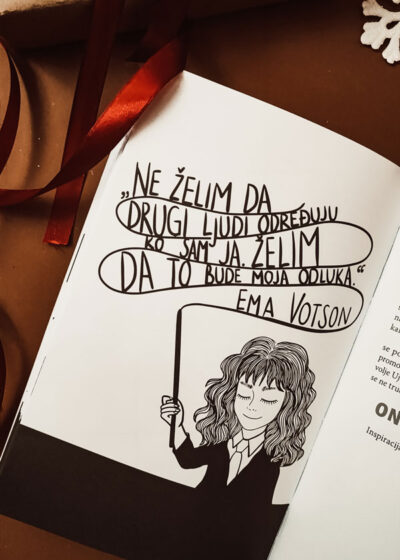 „NE ŽELIM DA
DRUGI LJUDI ODREĐUJU
KO SAM JA. ŽELIM
DA TO BUDE MOJA ODLUKA.“
EMA VOTSON
se po
promo
volje Uj
se ne tru
ON
Inspiracij